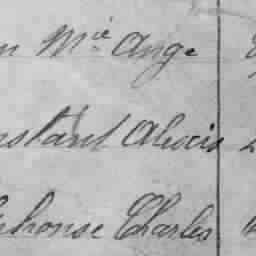 n Mie Ange
nstant Alexis
lphonse Charles